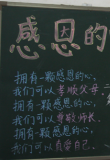 感恩的
拥有一颗感恩的心,
我们可以孝顺父母
拥有一颗感恩的心,
我们可以尊敬师长,
拥有一颗感恩的心,
我们可以关爱自己